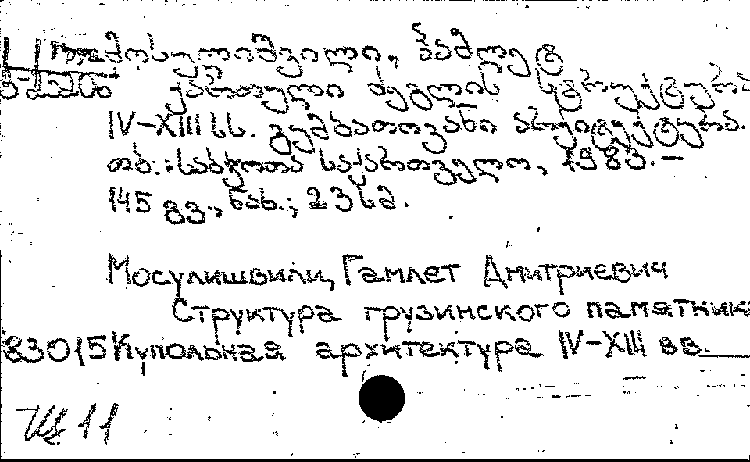 მოსულიშვილი, ჰამლეტ
ქართული ძეგლის სტრუქტურა
IV-XIII სს. გუმბათოვანი არქიტექტურა.
თბ.: საბჭოთა საქართველო, 1983.-
145 გვ., ნახ.; 23 სმ.
Мосулишвили, Гамлет Дмитриевич
Структура грузинского памятника
83015 Купольная архитектура IV-XIII вв.
11